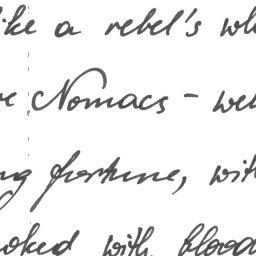 ike a rebel's wh
re Nomacs - we
ng fortune, wit
oked with blood